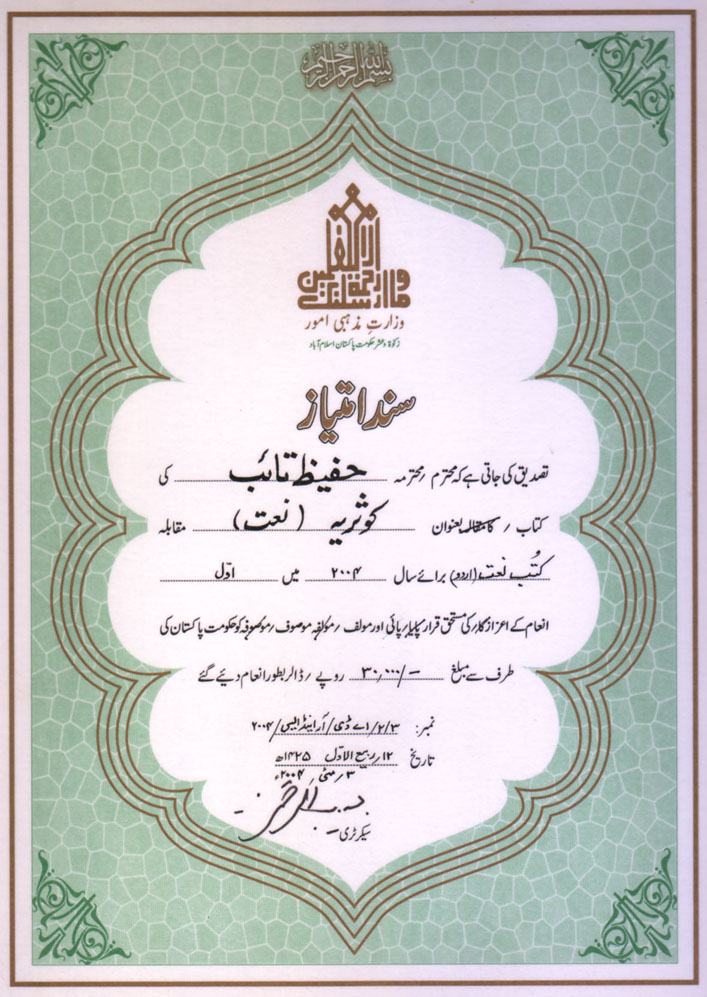 بسم الله الرحمن الرحيم
وما ارسلنك الا رحمة للعلمين
وزارتِ مذہبی امور
زکوٰۃ و عشر حکومت پاکستان اسلام آباد
سند امتیاز
تصدیق کی جاتی ہے کہ محترم / محترمہ حفیظ تائب کی
کتاب / کا مقالہ بعنوان کوثریہ (نعت) مقابلہ
کُتب نعت (اردو) برائے سال ۲۰۰۴ میں اوّل
انعام کے اعزاز کا / کی مستحق قرار پایا / پائی اور مولف / مؤلفہ موصوف / موصوفہ کو حکومت پاکستان کی
طرف سے مبلغ ۳۰,۰۰۰/- روپے / ڈالر بطور انعام دیئے گئے
نمبر: ۱/۲/۳ اے ڈی / آر اینڈ ایس / ۲۰۰۴
تاریخ ۱۲ / ربیع الاوّل ۱۴۲۵ھ
۳ / مئی ۲۰۰۴ء
سیکرٹری